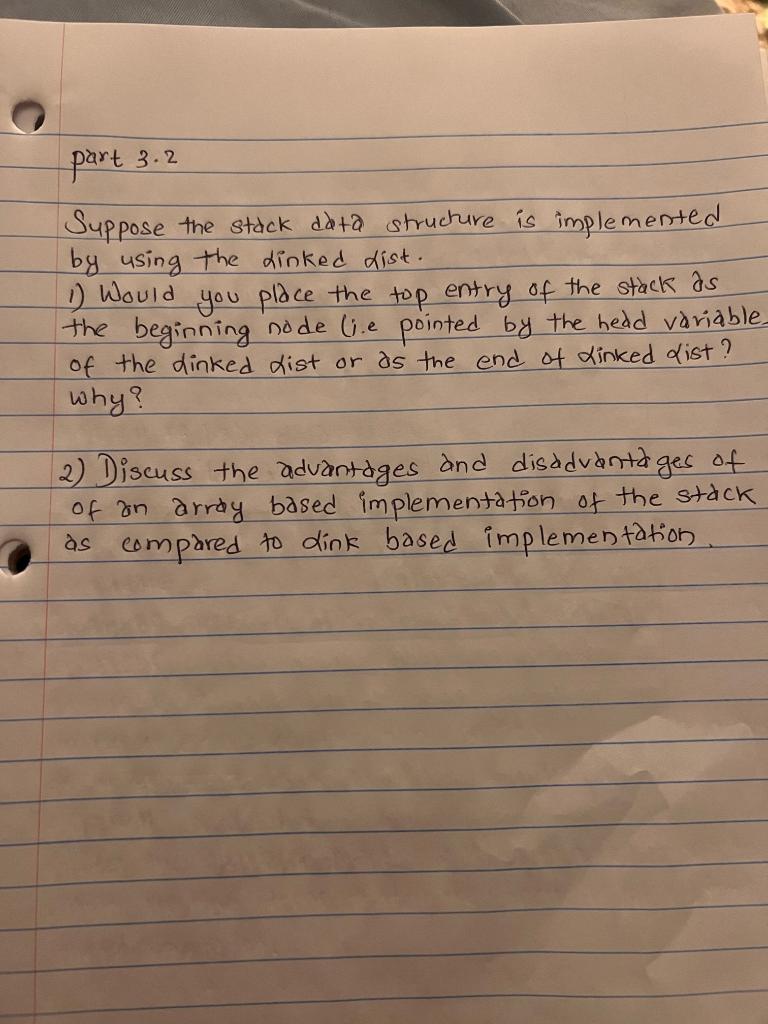 part 3.2
Suppose the stack data structure is implemented
by using the linked list.
1) Would you place the top entry of the stack as
the beginning node (i.e pointed by the head variable
of the linked list or as the end of linked list?
why?
2) Discuss the advantages and disadvantages of
of an array based implementation of the stack
as compared to link based implementation.